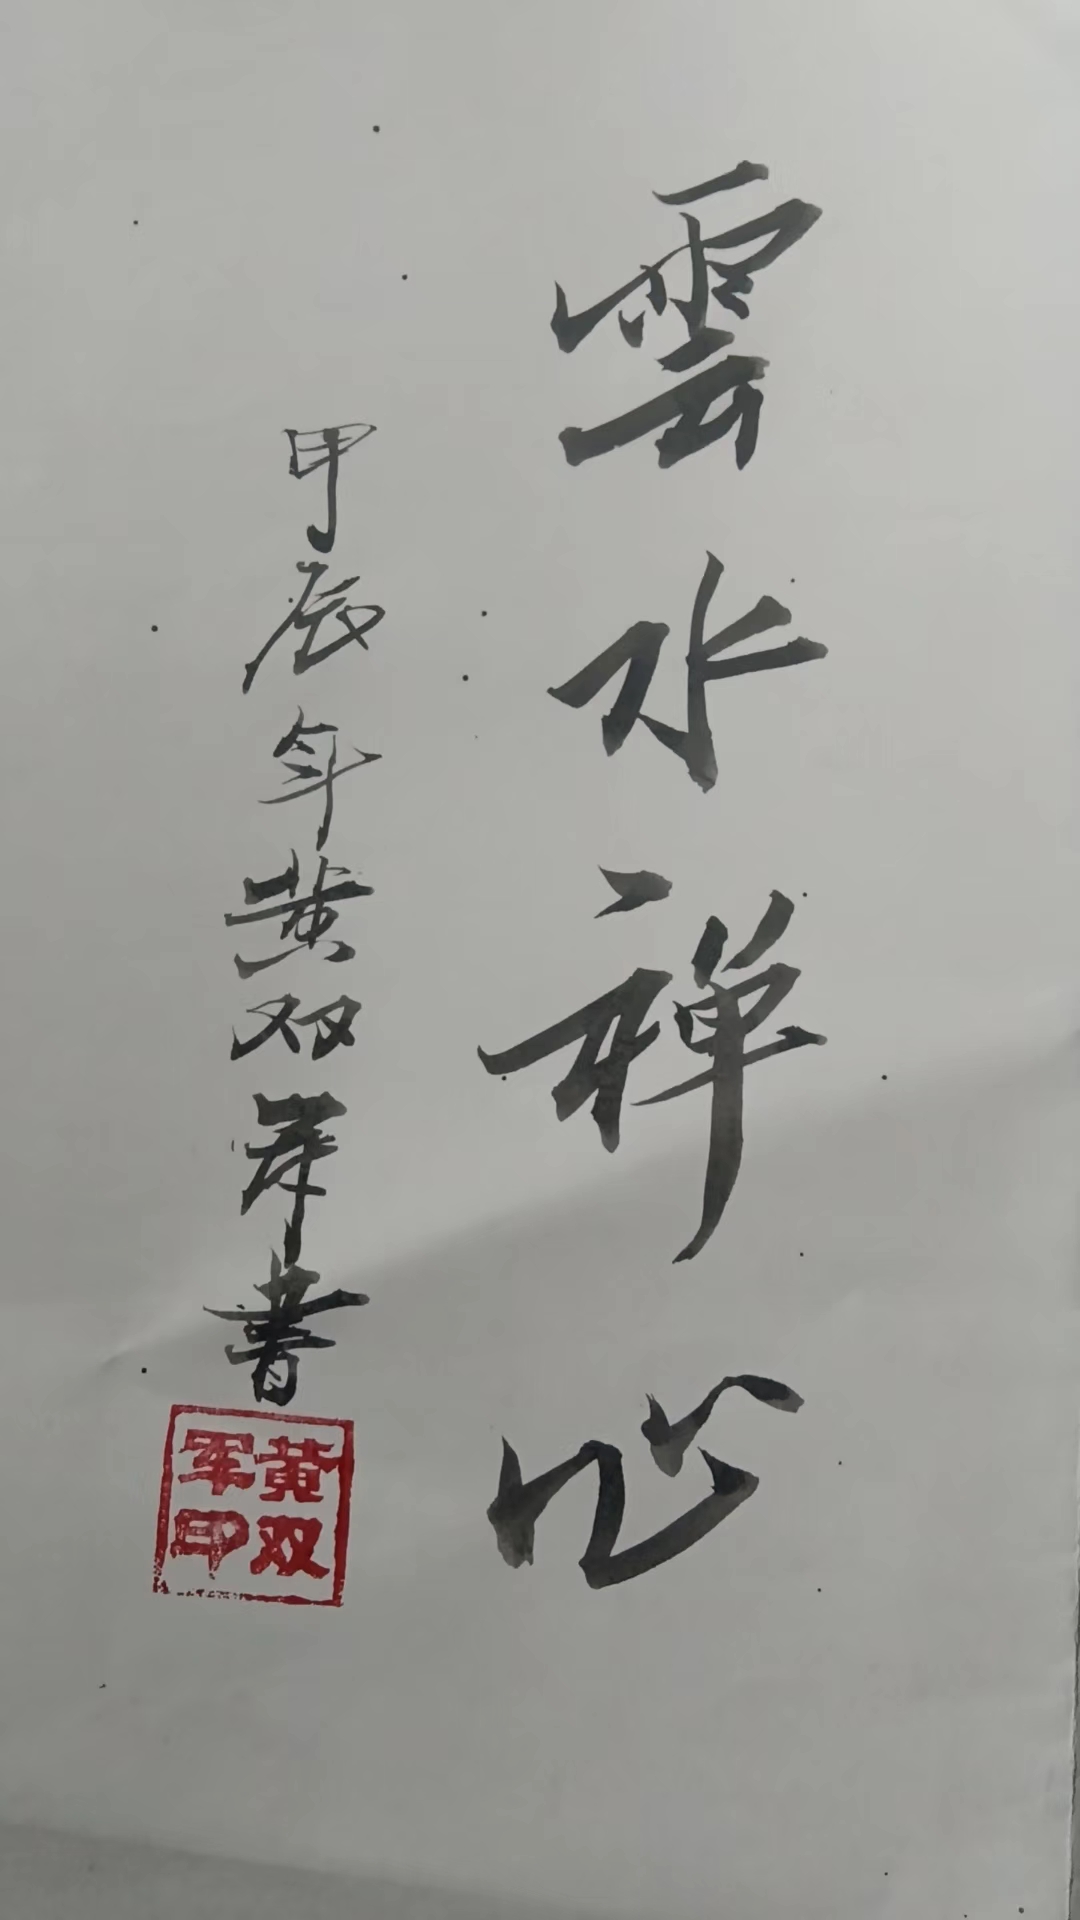 雲水禅心
甲辰年黄双军書
黄双
军印